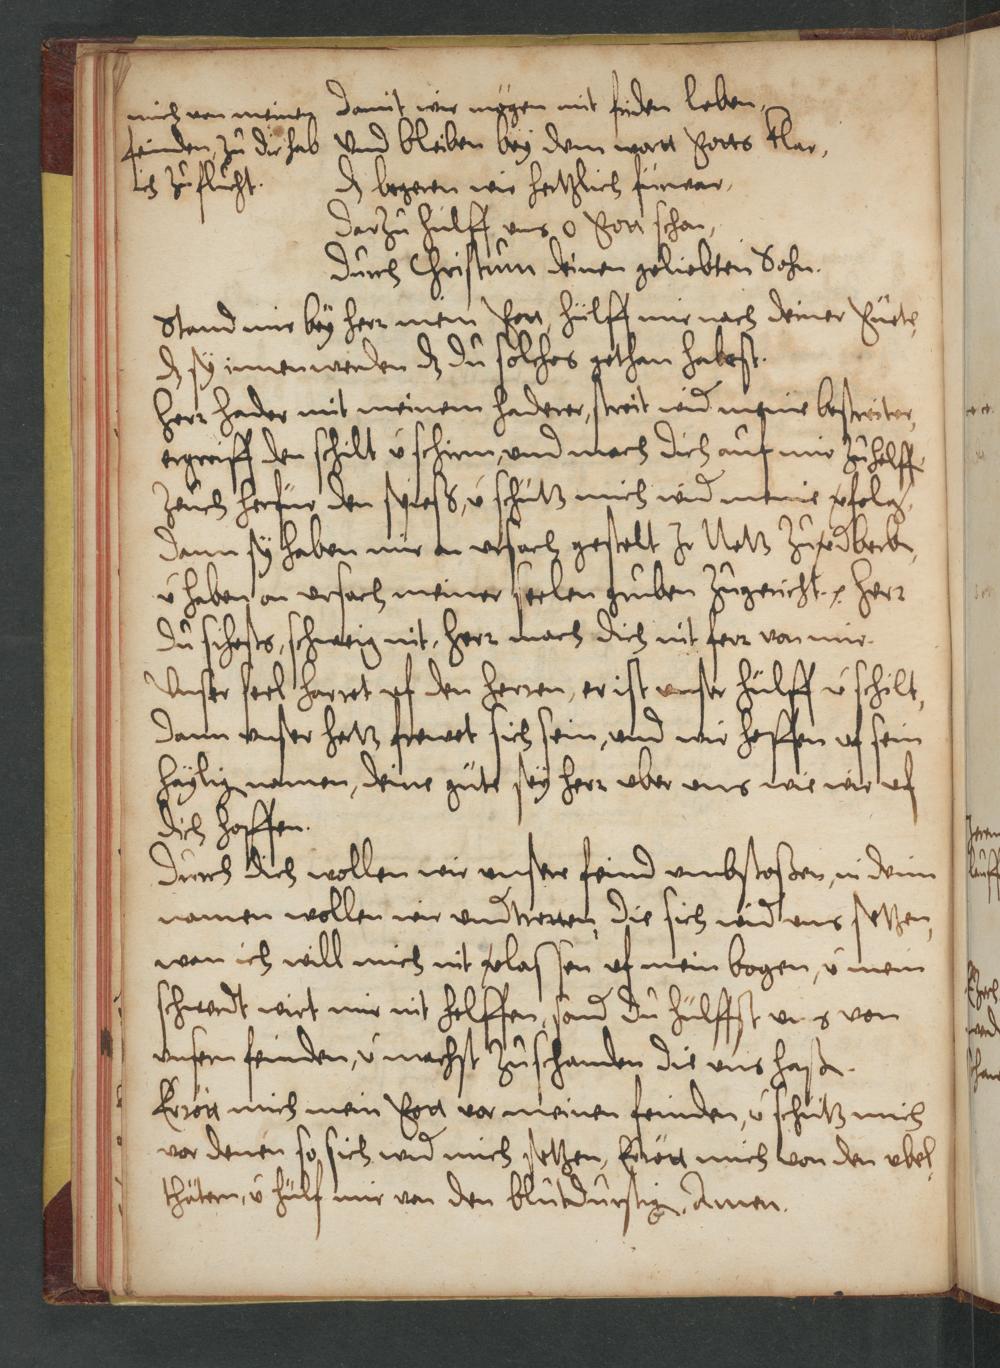 mich von meinen
feinden, zu dir hab
ich zuflucht.
Damit wir mögen mit friden leben,
Vnd bleiben bey dem wortt Gotts klar,
dz begeren wir hertzlich fürwar,
darzu hülff vns o Gott schon,
durch Christum deinen geliebten Sohn.
Stand mir bey herr mein Gott, hülff mir nach deiner Güete,
dz sy innen werden dz du solches gethan habest.
herr hader mit meinem haderer, streit wid meine bestreiter,
ergreiff den schilt ū schirm, und mach dich auf mir zu helff
zeuch herfür den spiess, ū schütz mich wid meine vfolg,
dann sy haben mir on vrsach gestelt Ir Netz zuvderb,
ū haben on vrsach meiner seelen gruben zugericht. herr
du sihests, schweig nit, herr mach dich nit ferr von mir.
Vnser seel harret vf den herren, er ist vnser hülff ū schilt,
dann vnser hertz frewet sich sein, vnd wir hoffen vf sein
haylig namen, deine güte sey herr vber vns wie wir vf
dich hoffen.
Durch dich wollen wir vnsere feind vmbstossen, in deim
namen wollen wir vndtretten, die sich wid vns setzen,
wan ich will mich nit vlassen vf mein bogen, ū mein
schwerdt wirt mir nit helffen, sond du hülffst vns von
vnsern feinden, ū machst zuschanden die vns hass.
Errött mich mein Gott vor meinen feinden, ū schütz mich
vor denen so sich wid mich setzen, Errött mich von den vbel
thätern, ū hülf mir von den blutdurstig, Amen.